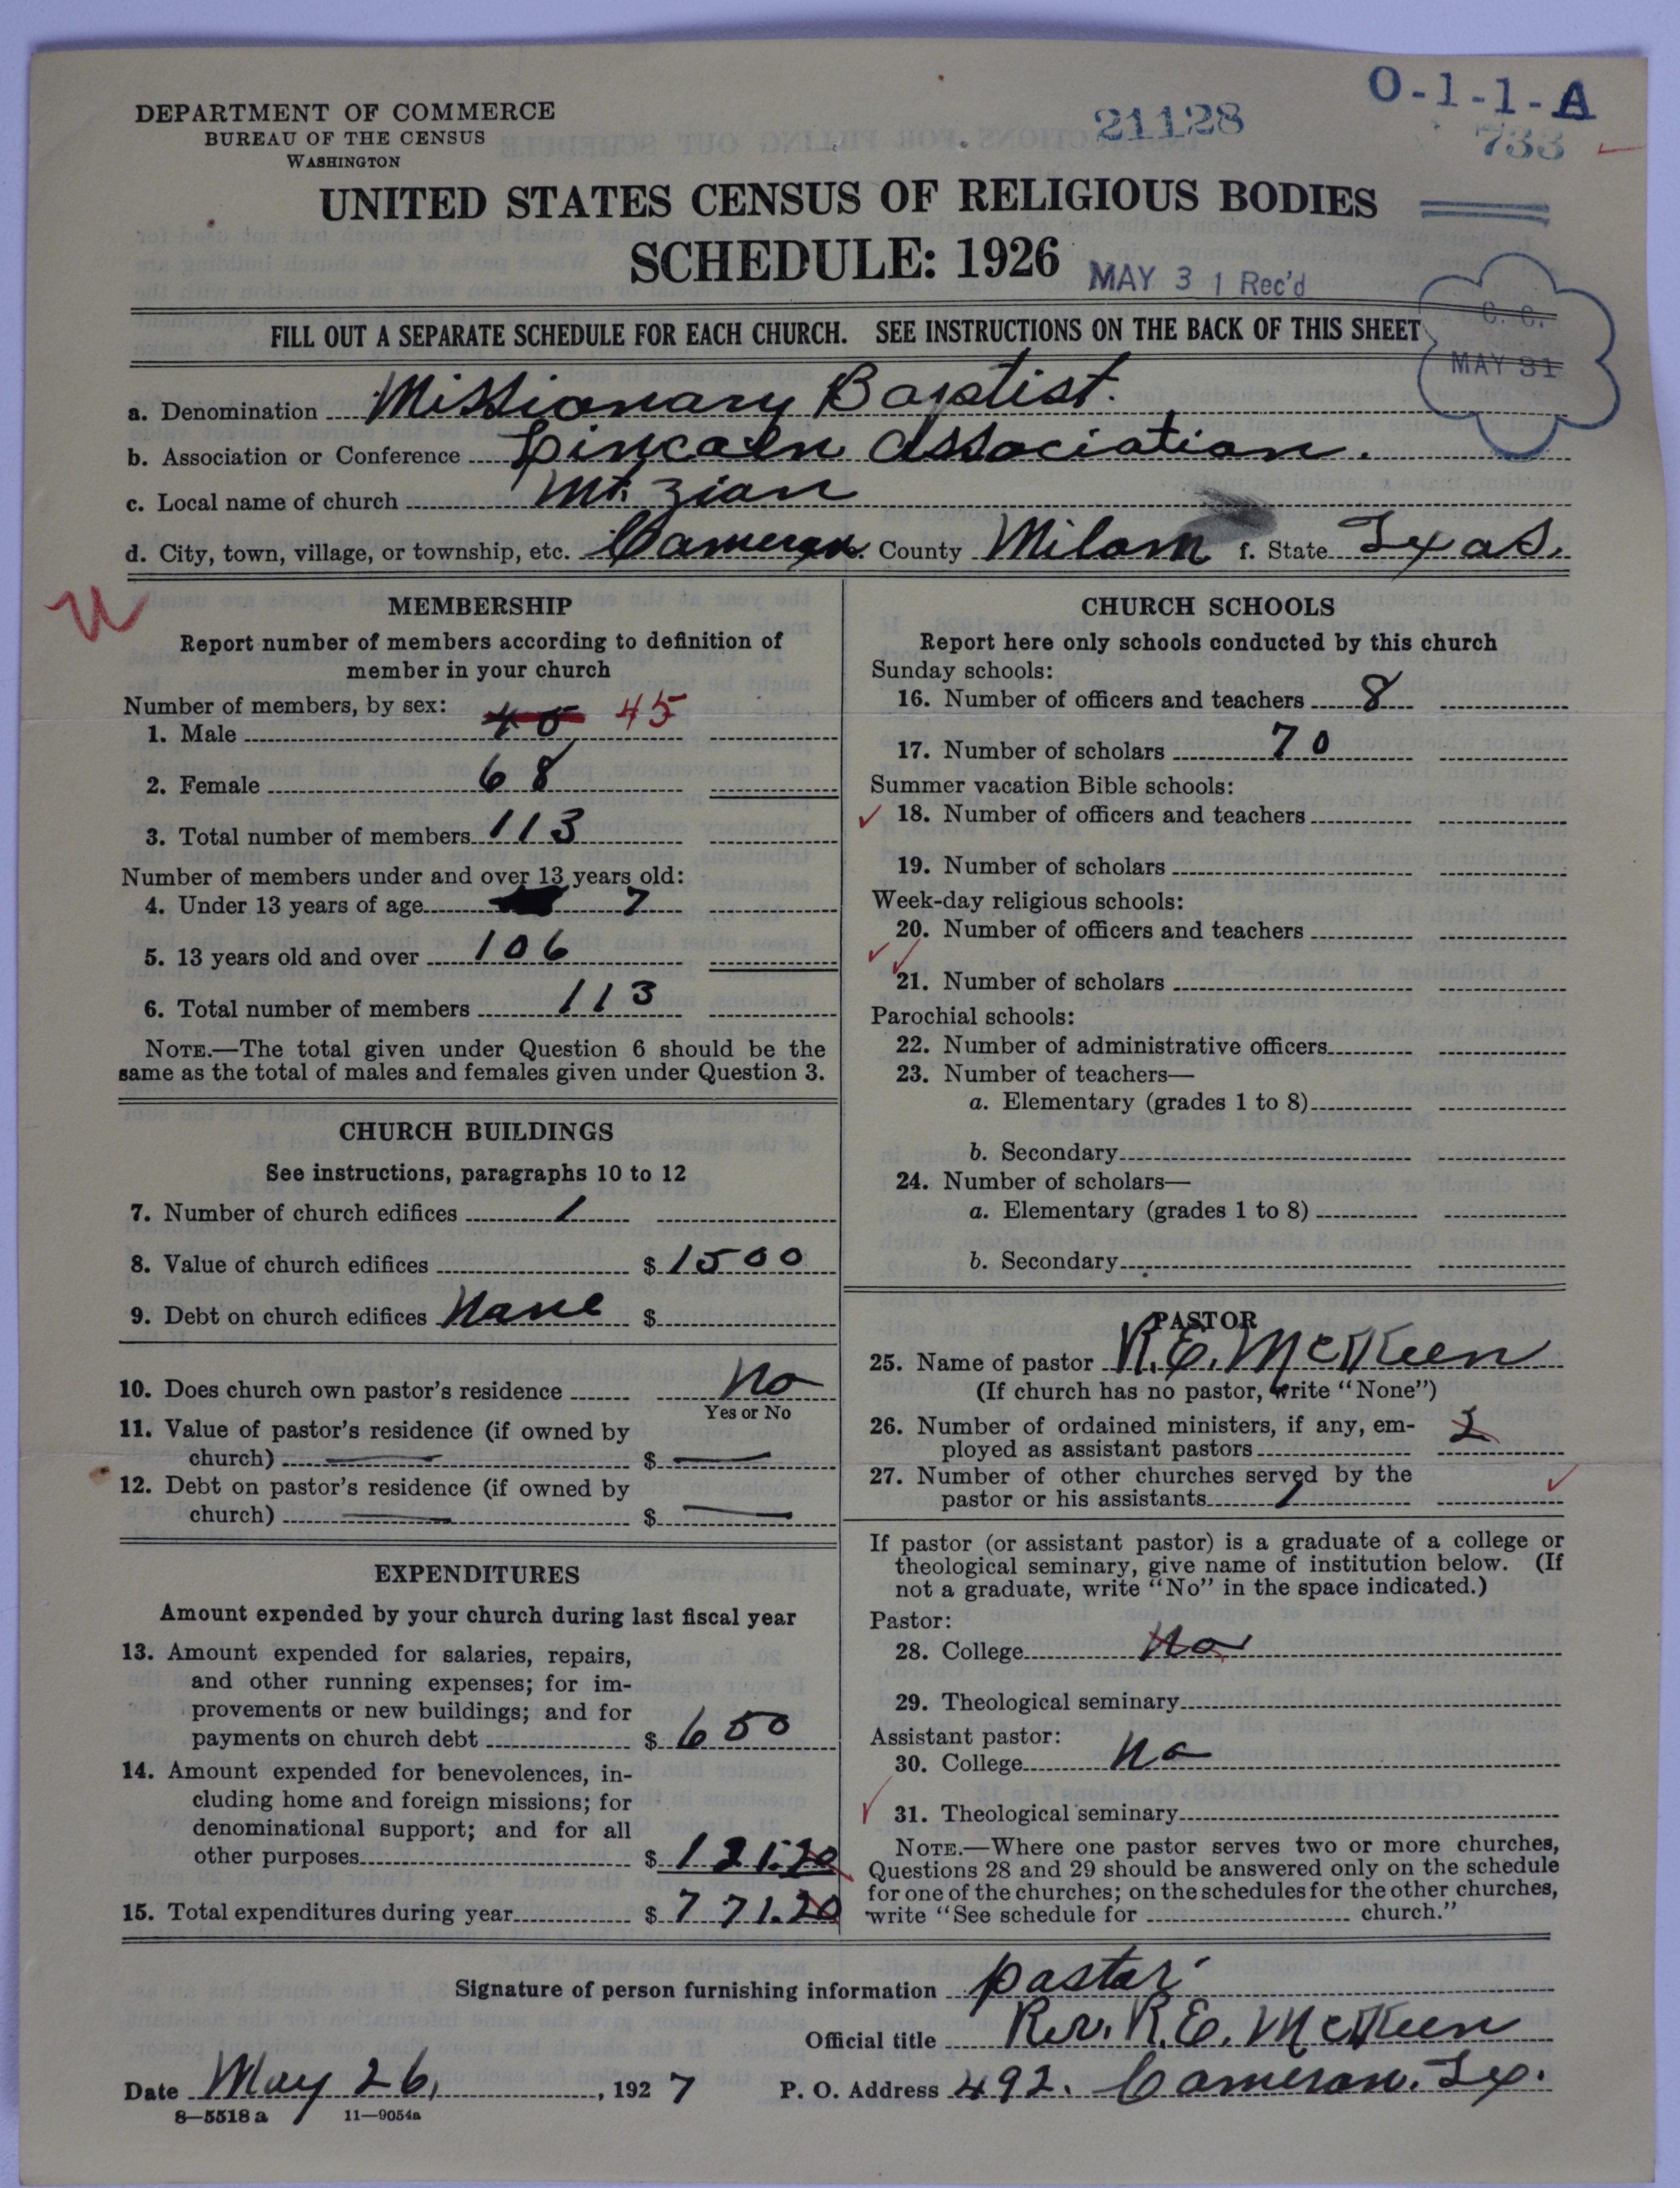 O-1-1-A
DEPARTMENT OF COMMERCE
21128
BUREAU OF THE CENSUS
733
WASHINGTON
UNITED STATES CENSUS OF RELIGIOUS BODIES
SCHEDULE: 1926
MAY 31 Rec'd
C. C.
FILL OUT A SEPARATE SCHEDULE FOR EACH CHURCH. SEE INSTRUCTIONS ON THE BACK OF THIS SHEET
MAY 31
a. Denomination Missionary Baptist.
b. Association or Conference Lincoln Association.
c. Local name of church Mt. Zion
d. City, town, village, or township, etc. Cameron County Milam f. State Texas.
U
MEMBERSHIP
Report number of members according to definition of
member in your church
Number of members, by sex:
1. Male 45 45
2. Female 68
3. Total number of members 113
Number of members under and over 13 years old:
4. Under 13 years of age 7
5. 13 years old and over 106
6. Total number of members 113
NOTE.—The total given under Question 6 should be the
same as the total of males and females given under Question 3.
CHURCH BUILDINGS
See instructions, paragraphs 10 to 12
7. Number of church edifices 1
8. Value of church edifices $ 1500
9. Debt on church edifices None $
10. Does church own pastor's residence No
Yes or No
11. Value of pastor's residence (if owned by
church) — $ —
12. Debt on pastor's residence (if owned by
church) — $ —
EXPENDITURES
Amount expended by your church during last fiscal year
13. Amount expended for salaries, repairs,
and other running expenses; for im-
provements or new buildings; and for
payments on church debt $ 650
14. Amount expended for benevolences, in-
cluding home and foreign missions; for
denominational support; and for all
other purposes $ 121.20
15. Total expenditures during year $ 771.20
CHURCH SCHOOLS
Report here only schools conducted by this church
Sunday schools:
16. Number of officers and teachers 8
17. Number of scholars 70
Summer vacation Bible schools:
18. Number of officers and teachers
19. Number of scholars
Week-day religious schools:
20. Number of officers and teachers
21. Number of scholars
Parochial schools:
22. Number of administrative officers
23. Number of teachers—
a. Elementary (grades 1 to 8)
b. Secondary
24. Number of scholars—
a. Elementary (grades 1 to 8)
b. Secondary
PASTOR
25. Name of pastor R.E. McKeen
(If church has no pastor, write "None")
26. Number of ordained ministers, if any, em-
ployed as assistant pastors 2
27. Number of other churches served by the
pastor or his assistants 1
If pastor (or assistant pastor) is a graduate of a college or
theological seminary, give name of institution below. (If
not a graduate, write "No" in the space indicated.)
Pastor:
28. College No
29. Theological seminary
Assistant pastor:
30. College No
31. Theological seminary
NOTE.—Where one pastor serves two or more churches,
Questions 28 and 29 should be answered only on the schedule
for one of the churches; on the schedules for the other churches,
write "See schedule for church."
Signature of person furnishing information pastor
Official title Rev. R.E. McKeen
Date May 26, 1927 P. O. Address 492. Cameron. Tex.
8—5518 a 11—9054a